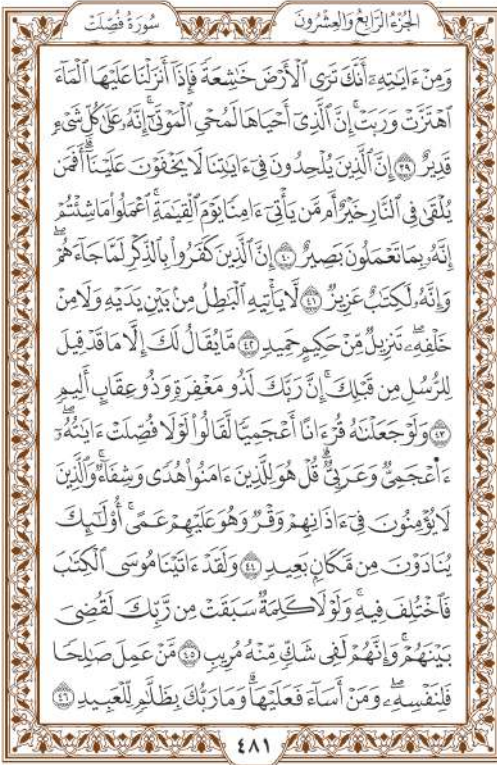 سُورَةُ فُصِّلَتْ
الجُزْءُ الرَّابِعُ وَالعِشْرُونَ
وَمِنْ ءَايَٰتِهِۦٓ أَنَّكَ تَرَى ٱلْأَرْضَ خَٰشِعَةً فَإِذَآ أَنزَلْنَا عَلَيْهَا ٱلْمَآءَ
ٱهْتَزَّتْ وَرَبَتْ ۚ إِنَّ ٱلَّذِىٓ أَحْيَاهَا لَمُحْىِ ٱلْمَوْتَىٰٓ ۚ إِنَّهُۥ عَلَىٰ كُلِّ شَىْءٍ
قَدِيرٌ ٣٩ إِنَّ ٱلَّذِينَ يُلْحِدُونَ فِىٓ ءَايَٰتِنَا لَا يَخْفَوْنَ عَلَيْنَآ ۗ أَفَمَن
يُلْقَىٰ فِى ٱلنَّارِ خَيْرٌ أَم مَّن يَأْتِىٓ ءَامِنًا يَوْمَ ٱلْقِيَٰمَةِ ۚ ٱعْمَلُوا۟ مَا شِئْتُمْ
إِنَّهُۥ بِمَا تَعْمَلُونَ بَصِيرٌ ٤٠ إِنَّ ٱلَّذِينَ كَفَرُوا۟ بِٱلذِّكْرِ لَمَّا جَآءَهُمْ ۖ
وَإِنَّهُۥ لَكِتَٰبٌ عَزِيزٌ ٤١ لَّا يَأْتِيهِ ٱلْبَٰطِلُ مِنۢ بَيْنِ يَدَيْهِ وَلَا مِنْ
خَلْفِهِۦ ۖ تَنزِيلٌ مِّنْ حَكِيمٍ حَمِيدٍ ٤٢ مَّا يُقَالُ لَكَ إِلَّا مَا قَدْ قِيلَ
لِلرُّسُلِ مِن قَبْلِكَ ۚ إِنَّ رَبَّكَ لَذُو مَغْفِرَةٍ وَذُو عِقَابٍ أَلِيمٍ
٤٣ وَلَوْ جَعَلْنَٰهُ قُرْءَانًا أَعْجَمِيًّا لَّقَالُوا۟ لَوْلَا فُصِّلَتْ ءَايَٰتُهُۥٓ ۖ
ءَا۬عْجَمِىٌّ وَعَرَبِىٌّ ۗ قُلْ هُوَ لِلَّذِينَ ءَامَنُوا۟ هُدًى وَشِفَآءٌ ۖ وَٱلَّذِينَ
لَا يُؤْمِنُونَ فِىٓ ءَاذَانِهِمْ وَقْرٌ وَهُوَ عَلَيْهِمْ عَمًى ۚ أُو۟لَٰٓئِكَ
يُنَادَوْنَ مِن مَّكَانٍۭ بَعِيدٍ ٤٤ وَلَقَدْ ءَاتَيْنَا مُوسَى ٱلْكِتَٰبَ
فَٱخْتُلِفَ فِيهِ ۗ وَلَوْلَا كَلِمَةٌ سَبَقَتْ مِن رَّبِّكَ لَقُضِىَ
بَيْنَهُمْ ۚ وَإِنَّهُمْ لَفِى شَكٍّ مِّنْهُ مُرِيبٍ ٤٥ مَّنْ عَمِلَ صَٰلِحًا
فَلِنَفْسِهِۦ ۖ وَمَنْ أَسَآءَ فَعَلَيْهَا ۗ وَمَا رَبُّكَ بِظَلَّٰمٍ لِّلْعَبِيدِ ٤٦
٤٨١